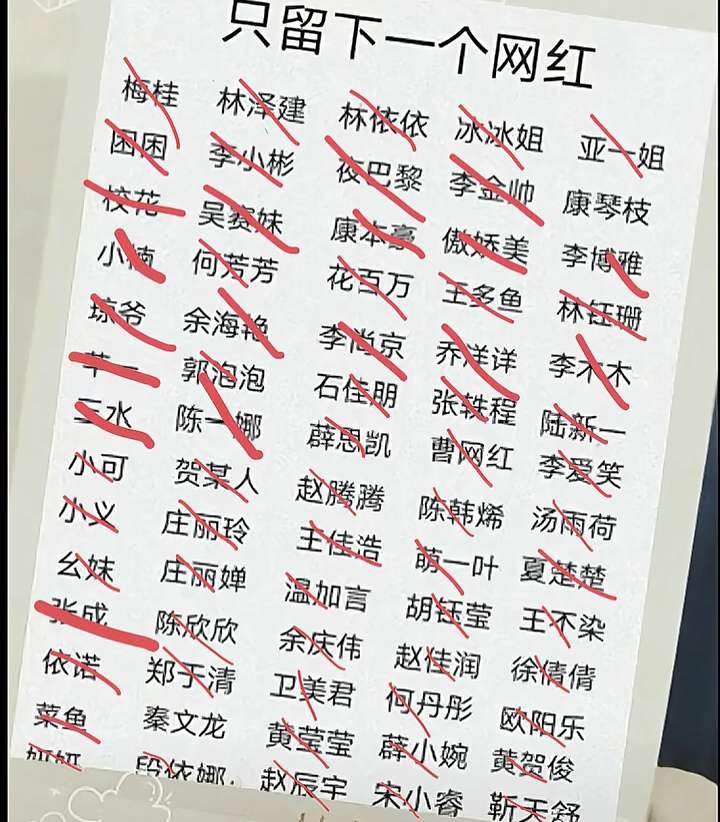 只留下一个网红
梅桂 林泽建 林依依 冰冰姐 亚一姐
困困 李小彬 夜巴黎 李金帅 康琴枝
校花 吴赛妹 康本豪 傲娇美 李博雅
小楠 何芳芳 花百万 王多鱼 林钰珊
琼爷 余海艳 李尚京 乔洋详 李木木
郭泡泡 石佳朋 张轶程 陆新一
三水 陈一娜 薛思凯 曹网红 李爱笑
小可 贺某人 赵腾腾 陈韩烯 汤雨荷
小义 庄丽玲 王佳浩 萌一叶 夏楚楚
幺妹 庄丽婵 温加言 胡钰莹 王不染
张成 陈欣欣 余庆伟 赵佳润 徐倩倩
依诺 郑于清 卫美君 何丹彤 欧阳乐
菜鱼 秦文龙 黄莹莹 薛小婉 黄贺俊
妍妍 段依娜 赵辰宇 宋小睿 靳天舒